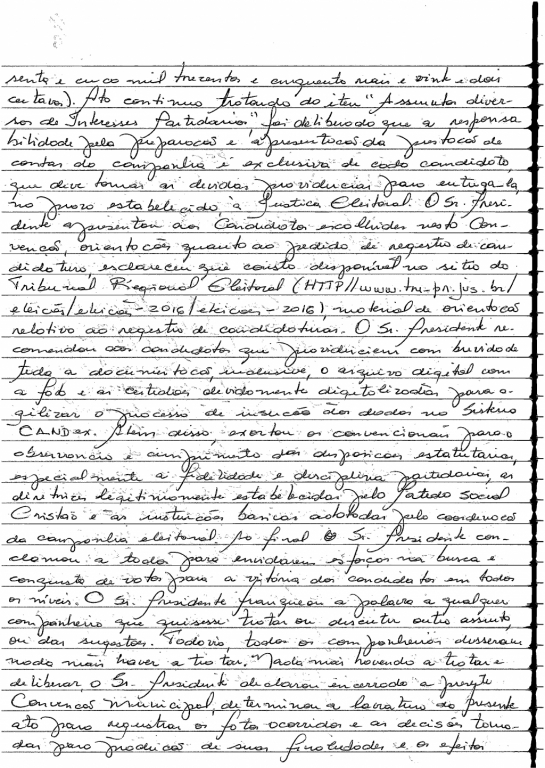 senta e cinco mil trezentos e cinquenta reais e vinte e dois
centavos). Ato contínuo tratando do item "Assuntos diver-
sos de Interesses Partidários", foi deliberado que a responsa
bilidade pelo preparação e apresentação da prestação de
contas da campanha é exclusiva de cada candidato,
que deve tomar as devidas providências para entregá-la,
no prazo estabelecido, à Justiça Eleitoral. O Sr. Presi-
dente apresentou aos Candidatos escolhidos nesta Con-
venção, orientações quanto ao pedido de registro de can-
didatura, esclareceu que consta disponível no sítio do
Tribunal Regional Eleitoral (HTTP//www.tre-pr.jus.br/
eleição/eleição-2016/eleições-2016), material de orientação
relativo ao registro de candidaturas. O Sr. Presidente re-
comendou aos candidatos que providenciem com brevidade
toda a documentação, inclusive, o arquivo digital com
a foto e as certidões devidamente digitalizadas para a-
gilizar o processo de inserção dos dados no Sistema
CANDex. Além disso, exortou os convencionais para o
observancia e cumprimento das disposições estatutárias,
especialmente a fidelidade e disciplina partidária, as
diretrizes legitimamente estabelecidas pelo Partido Social
Cristão e as instruções básicas adotadas pela coordenação
da campanha eleitoral. Ao final o Sr. Presidente con-
clamou a todos para envidarem esforços na busca e
conquista de votos para a vitória dos candidatos em todos
os níveis. O Sr. Presidente franqueou a palavra a qualquer
companheiro que quisesse tratar ou discutir outro assunto
ou dar sugestão. Todavia, todos os companheiros disseram
nada mais haver a tratar. Nada mais havendo a tratar e
deliberar, o Sr. Presidente declarou encerrada a presente
Convenção Municipal, determinou a lavratura da presente
ata para registrar os fatos ocorridos e as decisões toma-
das para produção de suas finalidades e os efeitos